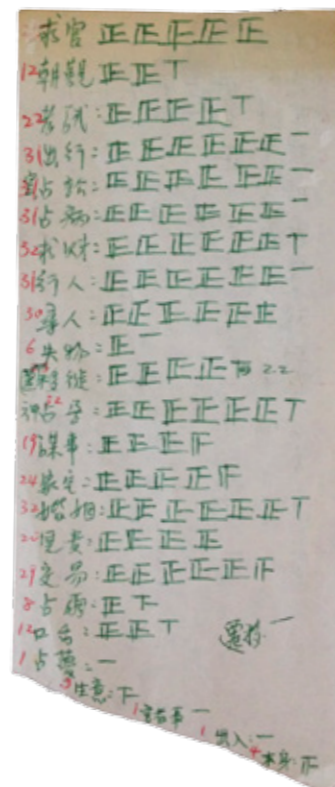 求官 正正正正正
12朝觀 正正丅
22考試:正正正正丅
31出行:正正正正正正一
占訟:正正正正正正一
31占病:正正正正正正一
32求財:正正正正正正丅
31行人:正正正正正正一
30尋人:正正正正正正
6失物:正一
正正正正 22
占孕:正正正正正正丅
19謀事:正正正
24家宅:正正正正
32婚姻:正正正正正正丅
20見貴:正正正正
29交易:正正正正正
8占雨:正下
12口舌:正正丅
一
1占夢:一
3生意:下
1 一
1出入:一
4本身: